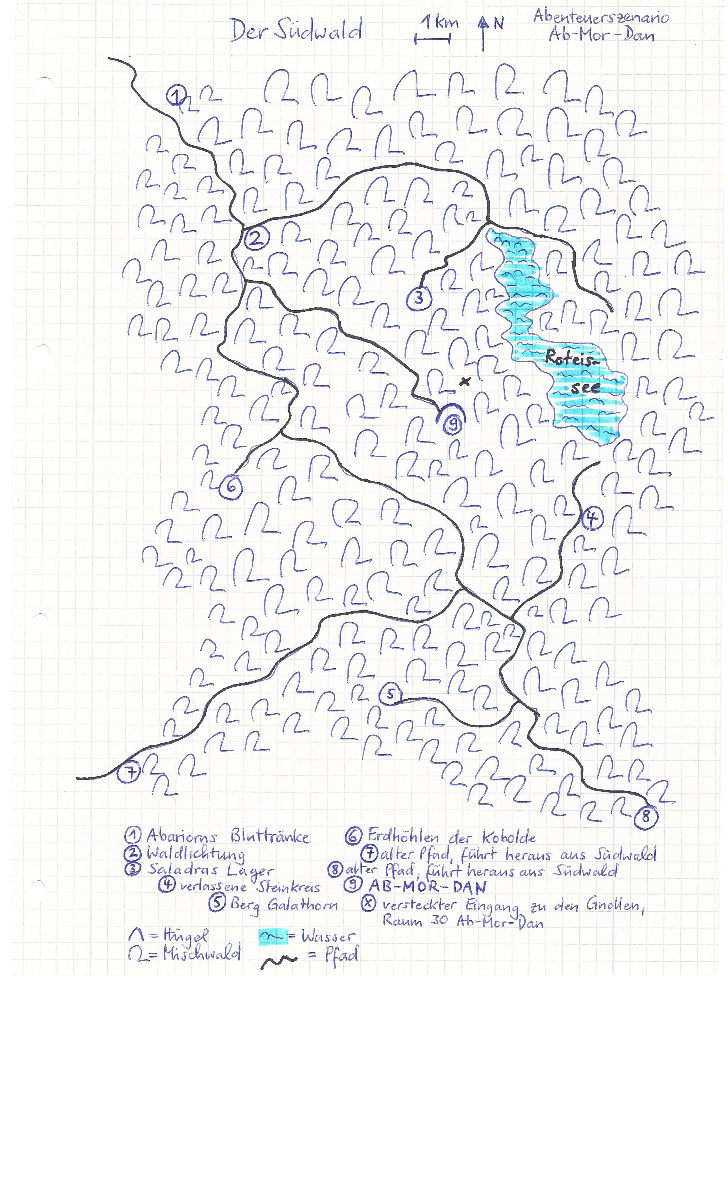 Der Südwald
1 km
N
Abenteuerszenario
Ab-Mor-Dan
1
2
3
Roteis-
see
9
6
4
5
7
8
① Abariorns Bluttränke ⑥ Erdhöhlen der Kobolde
② Waldlichtung ⑦ alter Pfad, führt heraus aus Südwald
③ Saladras Lager ⑧ alter Pfad, führt heraus aus Südwald
④ verlassene Steinkreis ⑨ AB-MOR-DAN
⑤ Berg Galathorn ⓧ versteckter Eingang zu den Gnollen,
Raum 30 Ab-Mor-Dan
= Hügel = Wasser
= Mischwald = Pfad